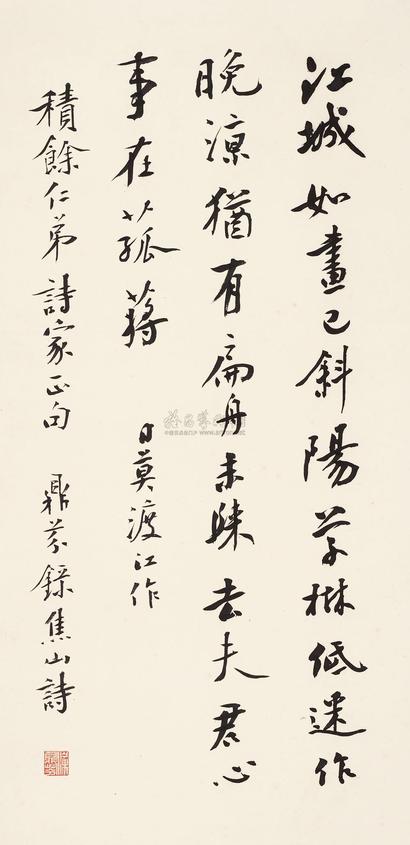 江城如畫已斜陽低迷作
晚涼猶有扁舟未歸去夫君心
事在菰蔣
日莫渡江作
積餘仁弟詩家正句
鼎芬錄焦山詩